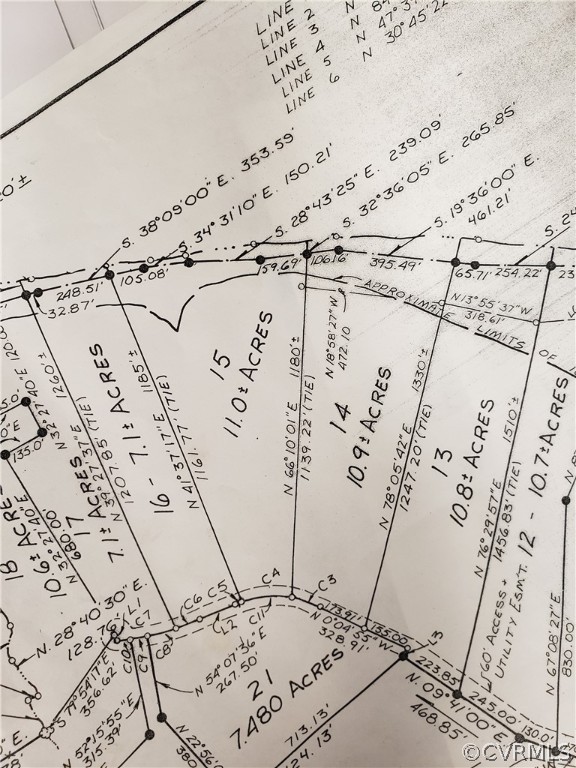 LINE 2
LINE 3
LINE 4
LINE 5
LINE 6
N
N 47°3
N 30°45'22
S. 38°09'00" E. 353.59'
S. 34°31'10" E. 150.21'
S. 28°43'25" E. 239.09'
S. 32°36'05" E. 265.85'
S. 19°36'00" E.
461.21'
S. 24
248.51'
105.08'
59.69'
106.16'
395.49'
65.71'
254.22'
32.87'
APPROXIMATE LIMITS OF
N13°55'37"W
318.61'
N 18°58'27"W
472.10
15
11.0± ACRES
14
10.9± ACRES
13
10.8± ACRES
12 - 10.7± ACRES
16 - 7.1± ACRES
17
7.1± ACRES
18
10.6± ACRES
1260'±
N 39°27'37"E
1207.85 (TIE)
1185'±
N 41°37'17"E
1161.77 (TIE)
1180'±
N 66°10'01"E
1139.22' (TIE)
1330'±
N 78°05'42"E
1247.20' (TIE)
1510'±
N 76°29'57"E
1456.83' (TIE)
N 67°08'27"E
830.00'
135.0'
N 32°27'40"E
N 32°27'00"
680'
N. 28°40'30" E.
128.76'
L1
C7
C6
C5
C4
C3
L2
C11
C8
C9
C10
173.91'
135.00'
L3
N 0°04'55"W
328.91'
N 54°07'36"E
267.50'
21
7.480 ACRES
713.13'
24.13'
S 79°54'17"E
356.62'
N 52°15'55"E
315.39'
N 22°56'0
380
223.85'
245.00'
130.0'
N 09°41'00"E
468.85'
60' ACCESS +
UTILITY ESM'T.
©CVRMLS